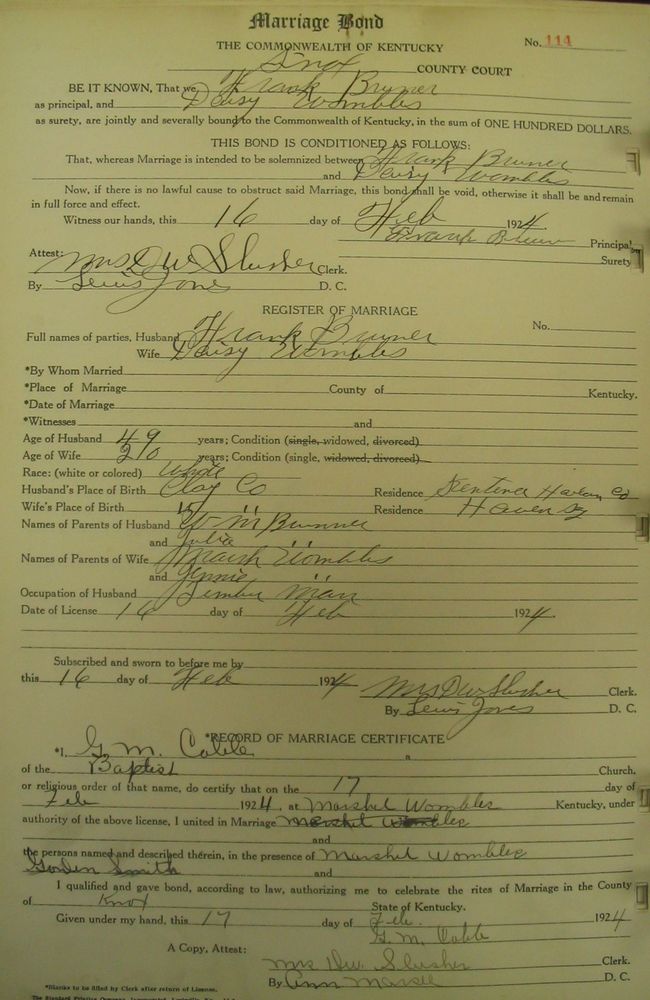 Marriage Bond
THE COMMONWEALTH OF KENTUCKY
No. 114
Knox COUNTY COURT
BE IT KNOWN, That we, Frank Bruner
as principal, and Daisy Wombles
as surety, are jointly and severally bound to the Commonwealth of Kentucky, in the sum of ONE HUNDRED DOLLARS.
THIS BOND IS CONDITIONED AS FOLLOWS:
That, whereas Marriage is intended to be solemnized between Frank Bruner
and Daisy Wombles
Now, if there is no lawful cause to obstruct said Marriage, this bond shall be void, otherwise it shall be and remain
in full force and effect.
Witness our hands, this 16 day of Feb 1924.
Frank Bruner Principal
Surety
Attest:
Mrs DW Slusher Clerk.
By Lewis Jones D. C.
REGISTER OF MARRIAGE
No.
Full names of parties, Husband Frank Bruner
Wife Daisy Wombles
*By Whom Married
*Place of Marriage County of Kentucky.
*Date of Marriage
*Witnesses and
Age of Husband 49 years; Condition (single, widowed, divorced)
Age of Wife 20 years; Condition (single, widowed, divorced)
Race: (white or colored) White
Husband's Place of Birth Clay Co Residence Harlan Co
Wife's Place of Birth " " Residence
Names of Parents of Husband Wm Brunner
and Julia " "
Names of Parents of Wife Marsh Wombles
and Jennie " "
Occupation of Husband Timber Man
Date of License 16 day of Feb 1924.
Subscribed and sworn to before me by
this 16 day of Feb 1924
Mrs DW Slusher Clerk.
By Lewis Jones D. C.
*RECORD OF MARRIAGE CERTIFICATE
*I, G. M. Cobb a
of the Baptist Church.
or religious order of that name, do certify that on the 17 day of
Feb 1924, at Marshel Wombles Kentucky, under
authority of the above license, I united in Marriage Marshel Wombles
and
the persons named and described therein, in the presence of Marshel Wombles
Gorden Smith and
I qualified and gave bond, according to law, authorizing me to celebrate the rites of Marriage in the County
of Knox State of Kentucky.
Given under my hand, this 17 day of Feb. 1924
G. M. Cobb
A Copy, Attest:
Mrs DW. Slusher Clerk.
By Ann D. C.
*Blanks to be filled by Clerk after return of License.